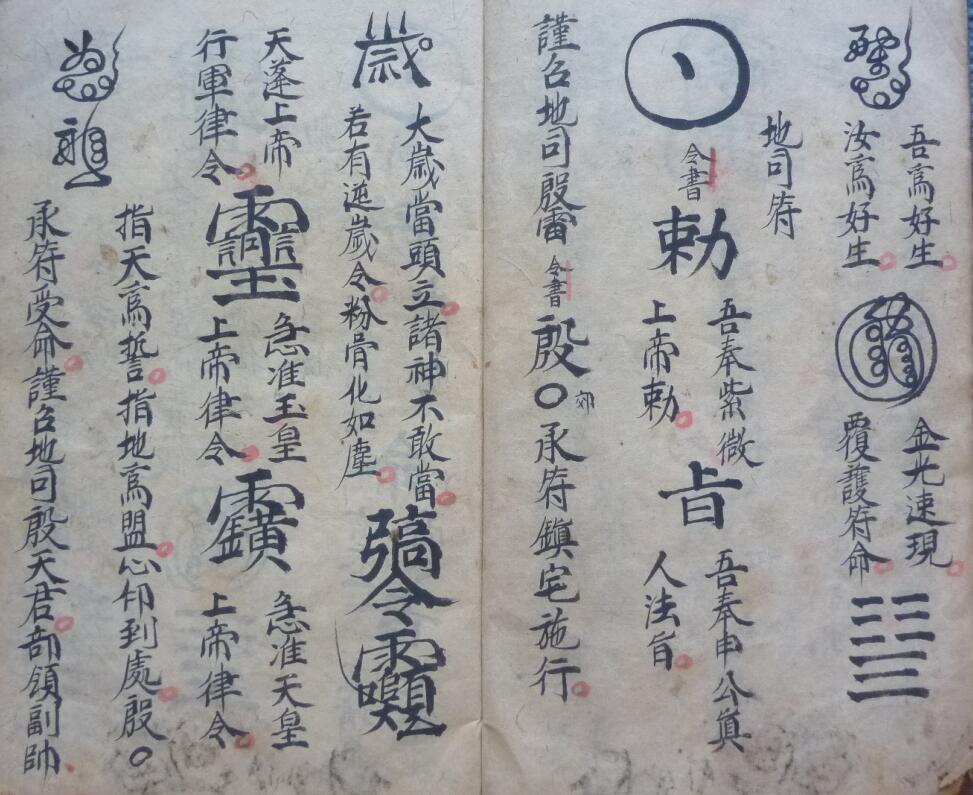 吾爲好生
汝爲好生
金光速現
覆護符命
地司符
令書
勅
吾奉紫微
上帝勅
㫖
吾奉申公真
人法㫖
謹召地司殷雷
令書
殷○郊
承符鎮宅施行
歲
大歲當頭立諸神不敢當
若有逆歲令粉骨化如塵
令
天蓬上帝
行軍律令
急准玉皇
上帝律令
急准天皇
上帝律令
指天爲誓指地爲盟心印到處殷○
承符受命謹召地司殷天君部領副帥